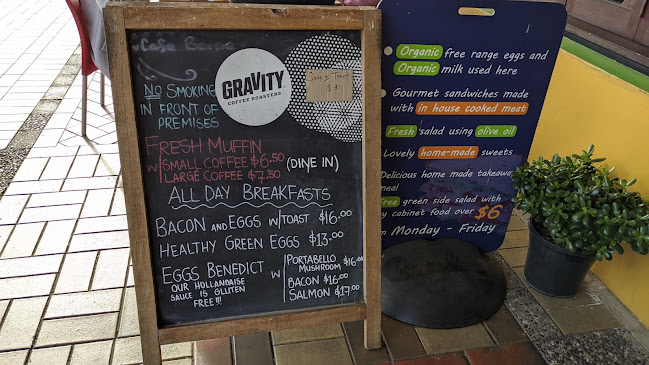 Cafe
GRAVITY
COFFEE ROASTERS
NO SMOKING
IN FRONT OF
PREMISES
FRESH MUFFIN
W/ SMALL COFFEE $6.50
LARGE COFFEE $7.50
(DINE IN)
ALL DAY BREAKFASTS
BACON AND EGGS W/TOAST $16.00
HEALTHY GREEN EGGS $13.00
EGGS BENEDICT W
OUR HOLLANDAISE
SAUCE IS GLUTEN
FREE!!!
PORTABELLO
MUSHROOM $16.00
BACON $16.00
SALMON $17.00
Organic free range eggs and
Organic milk used here
Gourmet sandwiches made
with in house cooked meat
Fresh salad using olive oil
Lovely home-made sweets
Delicious home made takeaway
meal
Free green side salad with
y cabinet food over $6
m Monday - Friday